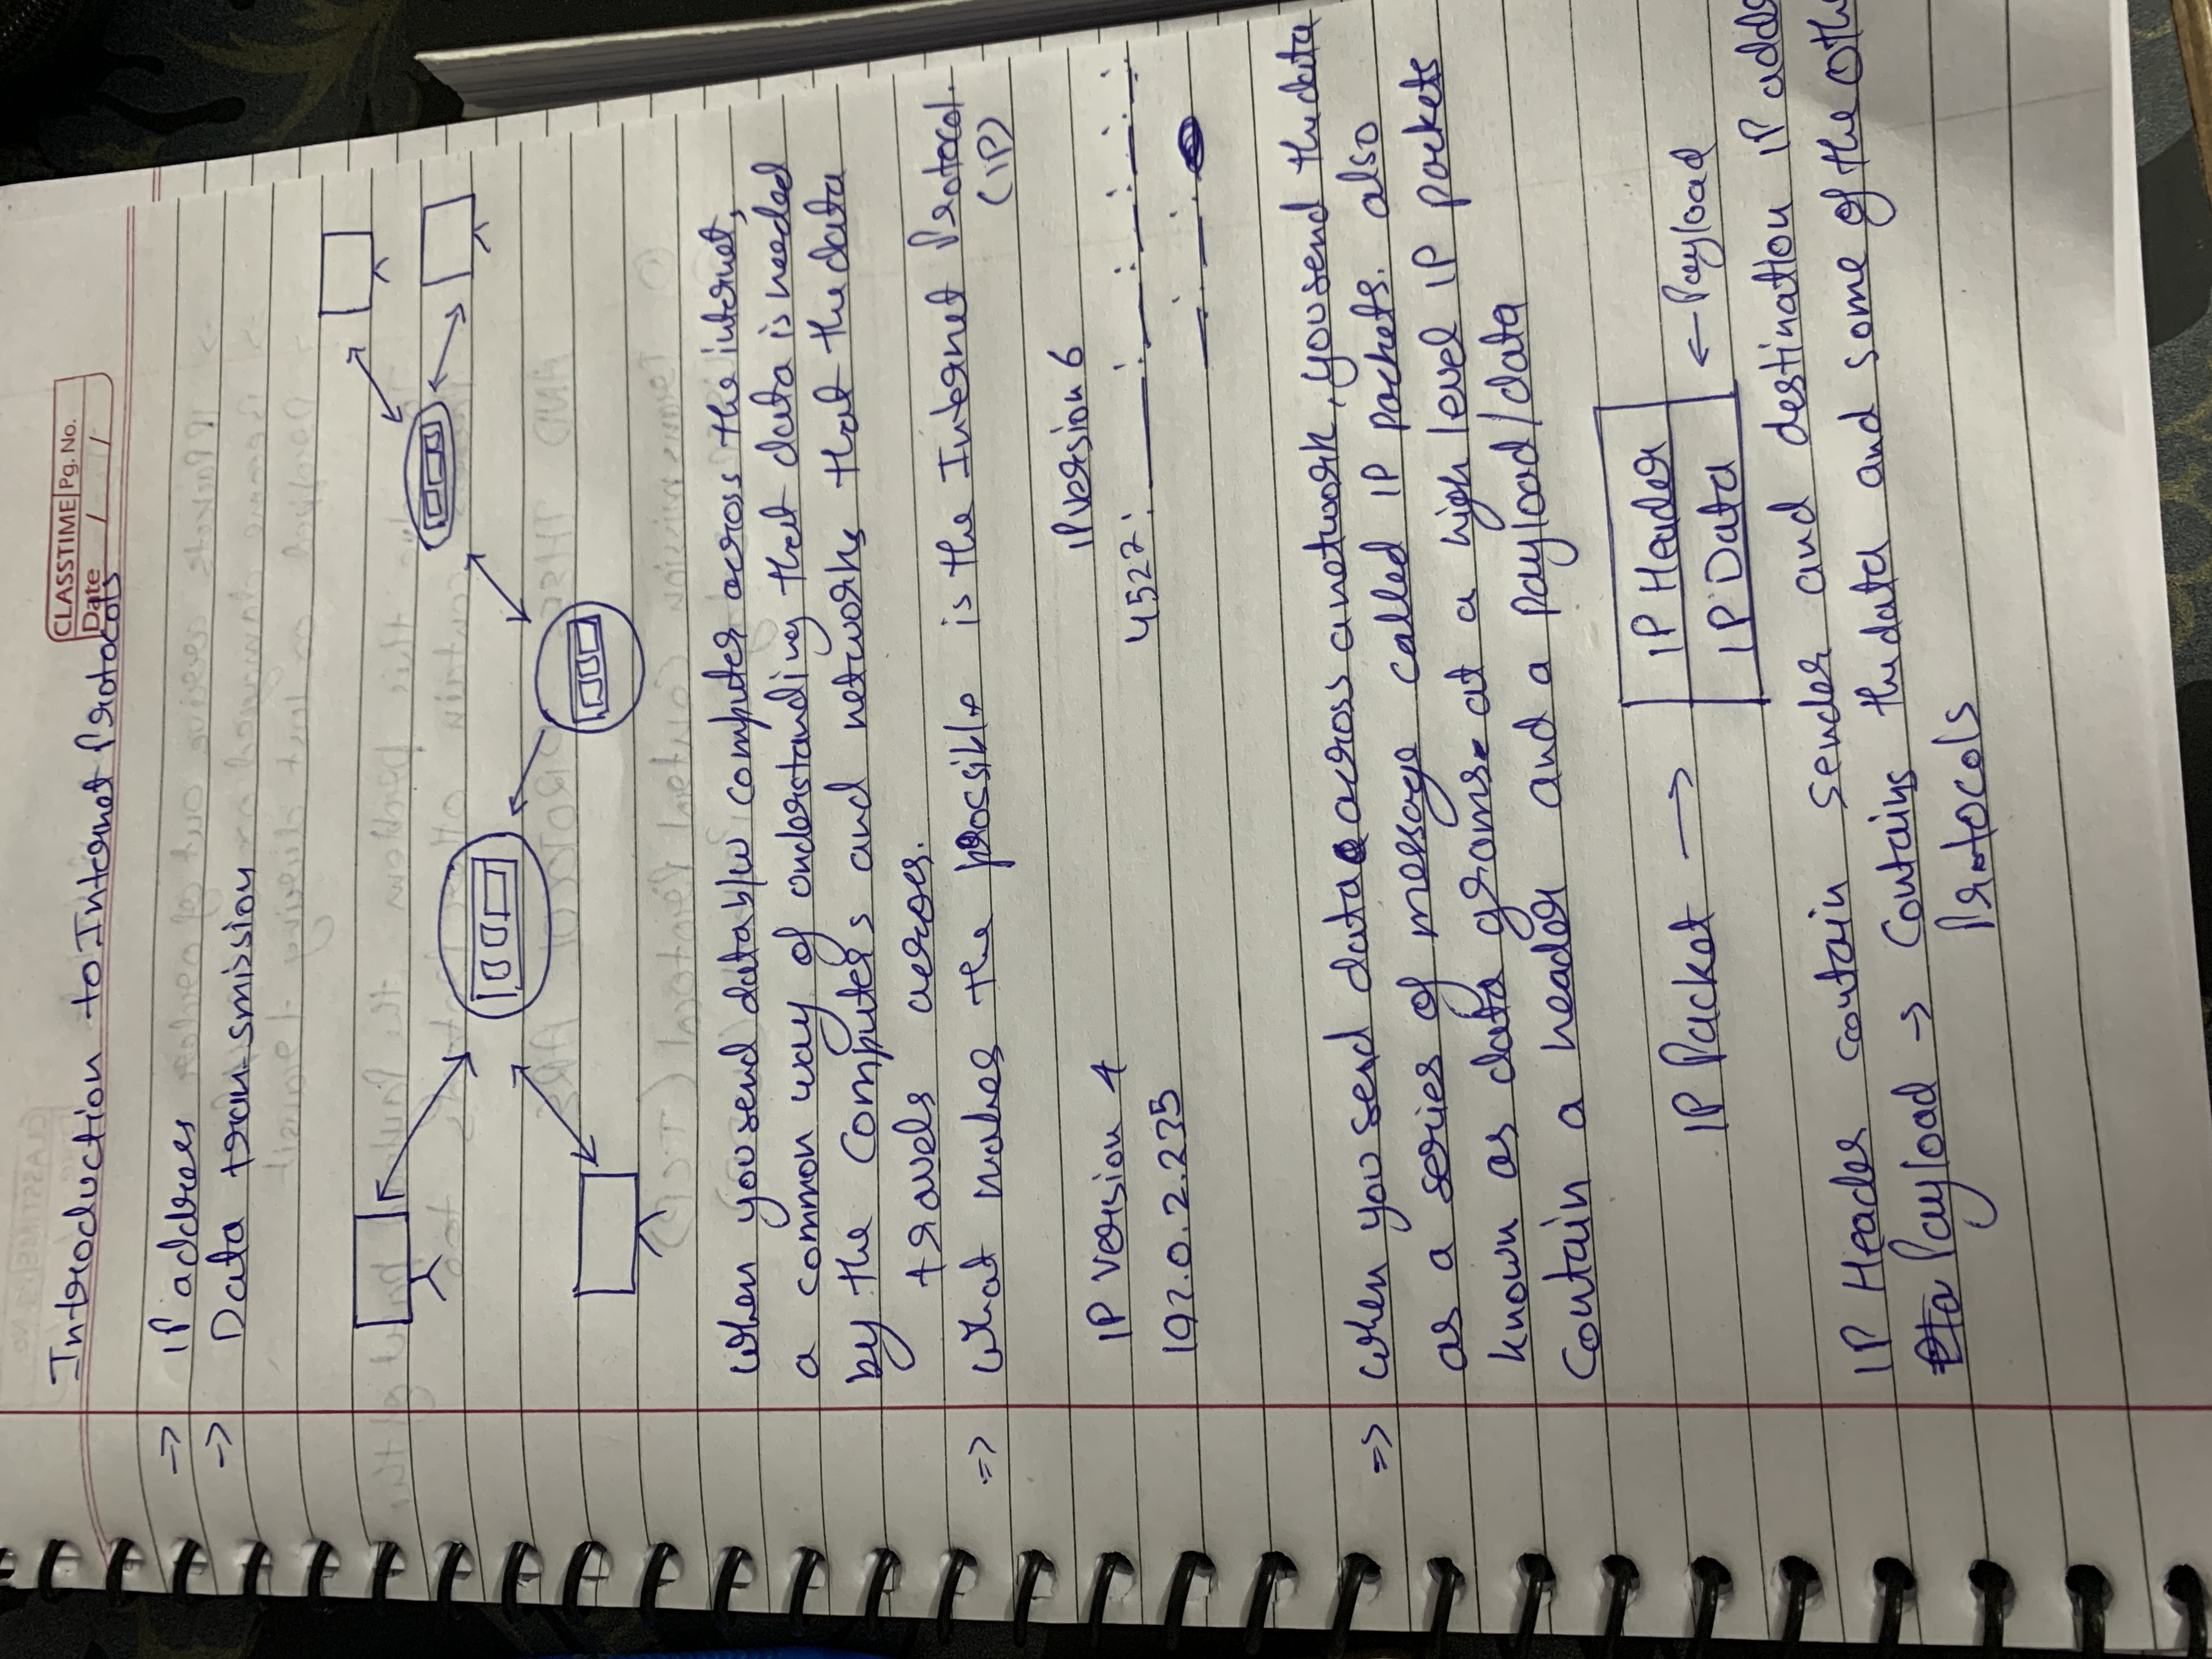 Introduction to Internet Protocols
CLASSTIME Pg. No.
Date / /
=> IP address
=> Data transmission
When you send data b/w computer across the internet,
a common way of understanding that data is needed
by the computers and networks that the data
travels across.
=> What makes the possible is the Internet Protocol.
(IP)
IP Version 4
IP version 6
192.0.2.235
4527:
=> When you send data across a network, you send the data
as a series of message called IP packets. also
known as data grams. at a high level IP packets
Contain a header and a payload/data
IP Packet → IP Header
IP Data ← Payload
IP Header contain sender and destination IP addr
Payload → Contains the data and some of the oth
Protocols